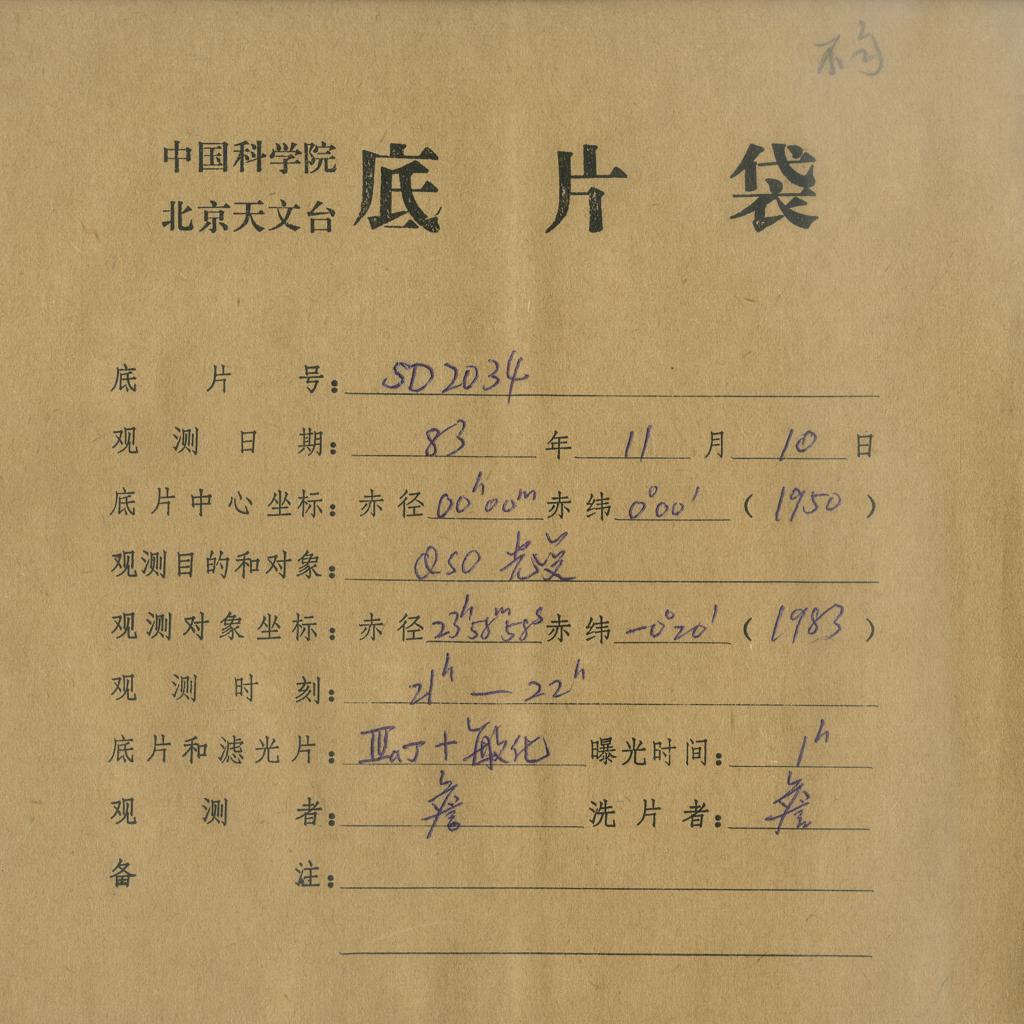 中国科学院
北京天文台
底片袋
底片号：SD2034
观测日期：83年11月10日
底片中心坐标：赤径00ʰ00ᵐ赤纬0°00′（1950）
观测目的和对象：QSO 光变
观测对象坐标：赤径23ʰ58ᵐ58ˢ赤纬-0°20′（1983）
观测时刻：21ʰ — 22ʰ
底片和滤光片：ⅢaJ + 敏化 曝光时间：1ʰ
观测者：詹 洗片者：詹
备注：